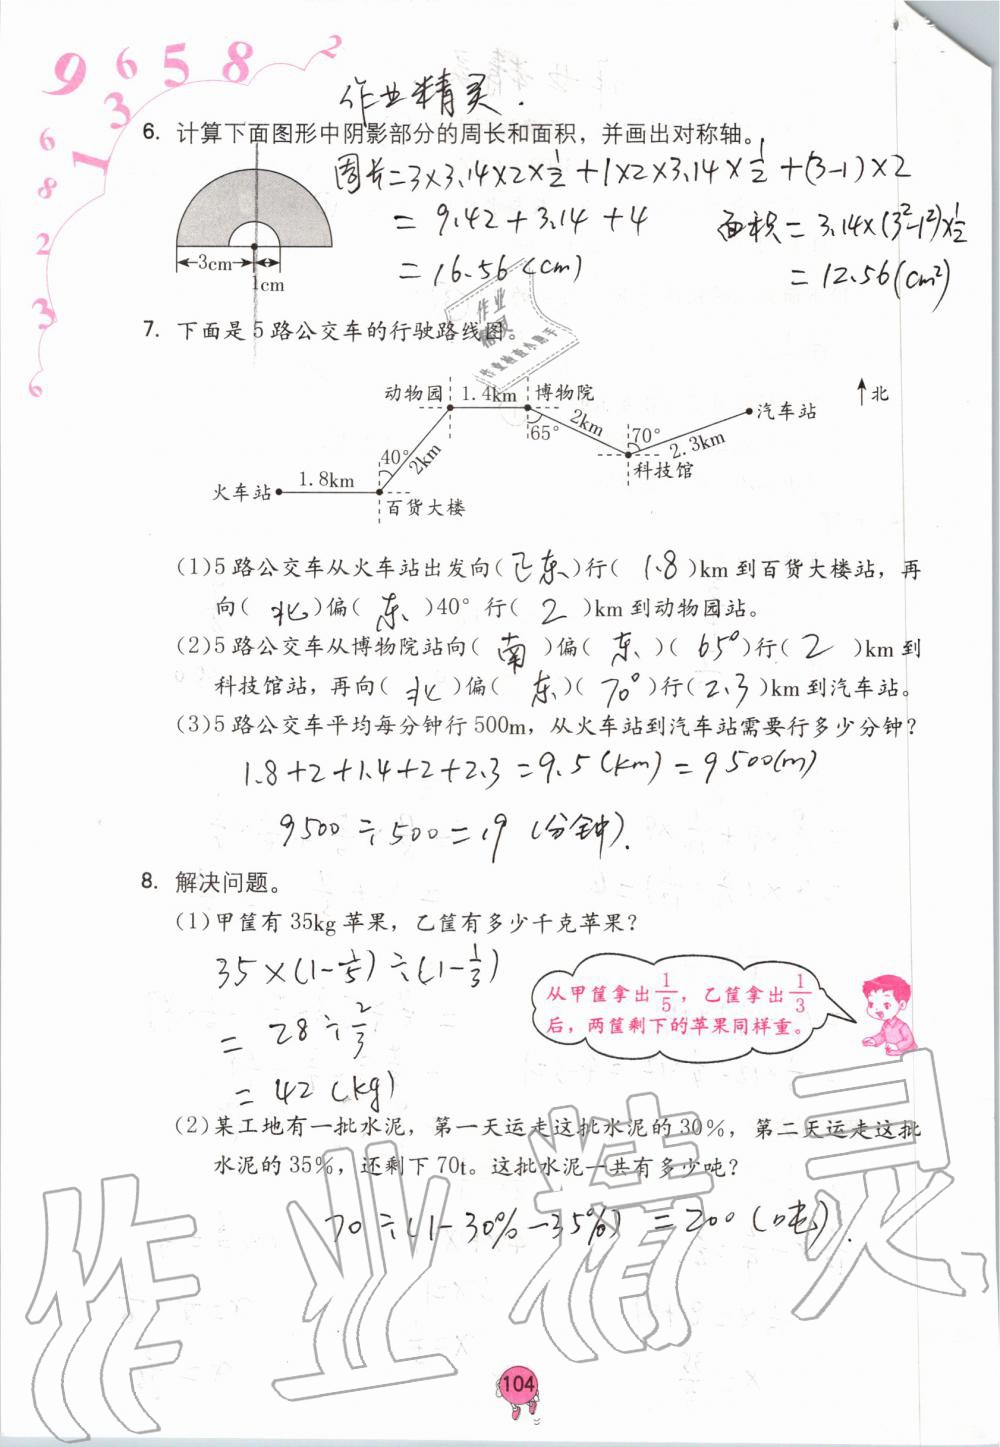 9 6 5 8 2
1 3
6
8
2
3
6
作业精灵.
6. 计算下面图形中阴影部分的周长和面积，并画出对称轴。
周长=3×3.14×2×1/2+1×2×3.14×1/2+(3-1)×2
=9.42+3.14+4
=16.56(cm)
面积=3.14×(3²-1²)×1/2
=12.56(cm²)
3cm
1cm
作业
精灵
作业检查小助手
7. 下面是5路公交车的行驶路线图。
动物园 1.4km 博物院
北
汽车站
2km
65°
70°
2.3km
科技馆
40°
2km
1.8km
火车站
百货大楼
(1)5路公交车从火车站出发向(正东)行(1.8)km到百货大楼站，再
向(北)偏(东)40°行(2)km到动物园站。
(2)5路公交车从博物院站向(南)偏(东)(65°)行(2)km到
科技馆站，再向(北)偏(东)(70°)行(2.3)km到汽车站。
(3)5路公交车平均每分钟行500m，从火车站到汽车站需要行多少分钟？
1.8+2+1.4+2+2.3=9.5(km)=9500(m)
9500÷500=19(分钟).
8. 解决问题。
(1)甲筐有35kg苹果，乙筐有多少千克苹果？
35×(1-1/5)÷(1-1/3)
=28÷2/3
=42(kg)
从甲筐拿出1/5，乙筐拿出1/3
后，两筐剩下的苹果同样重。
(2)某工地有一批水泥，第一天运走这批水泥的30%，第二天运走这批
水泥的35%，还剩下70t。这批水泥一共有多少吨？
70÷(1-30%-35%)=200(吨).
作业精灵
104